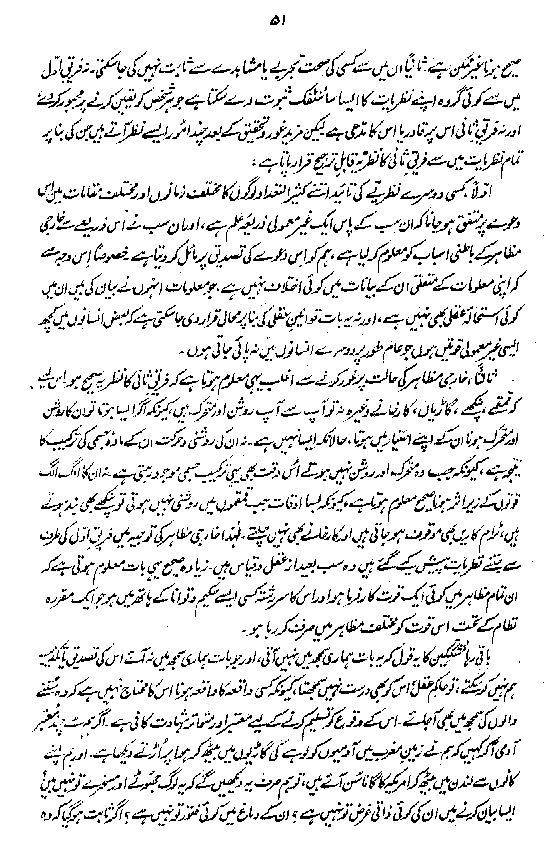 ۵۱
صحیح ہونا غیر ممکن ہے۔ ثانیاً ان میں سے کسی کی صحت تجربے یا مشاہدے سے ثابت نہیں کی جاسکتی۔ نہ فریقِ اوّل
میں سے کوئی گروہ اپنے نظریات کا ایسا سائنٹفک ثبوت دے سکتا ہے جو ہر شخص کو یقین کرنے پر مجبور کر دے
اور نہ فریقِ ثانی اس پر قادر یا اس کا مدعی ہے لیکن مزید غور و تحقیق کے بعد چند امور ایسے نظر آتے ہیں جن کی بنا پر
تمام نظریات میں سے فریقِ ثانی کا نظریہ قابلِ ترجیح قرار پاتا ہے:
اولاً کسی دوسرے نظریے کی تائید اتنے کثیر التعداد لوگوں کا مختلف زمانوں اور مختلف مقامات میں اس
دعوے پر متفق ہو جانا کہ ان سب کے پاس ایک غیر معمولی ذریعۂ علم ہے، اور ان سب نے اس ذریعے سے خارجی
مظاہر کے باطنی اسباب کو معلوم کر لیا ہے، ہم کو اس دعوے کی تصدیق پر مائل کر دیتا ہے خصوصاً اس وجہ سے
کہ اپنی معلومات کے متعلق ان کے بیانات میں کوئی اختلاف نہیں ہے۔ جو معلومات انہوں نے بیان کی ہیں ان میں
کوئی استحالۂ عقلی بھی نہیں ہے، اور نہ یہ بات قوانینِ عقلی کی بنا پر محال قرار دی جاسکتی ہے کہ بعض انسانوں میں کچھ
ایسی غیر معمولی قوتیں ہوں جو عام طور پر دوسرے انسانوں میں نہ پائی جاتی ہوں۔
ثالثاً، خارجی مظاہر کی حالت پر غور کرنے سے اغلب یہی معلوم ہوتا ہے کہ فریقِ ثانی کا نظریہ صحیح ہو۔ اس لیے
کہ قمقمے، پنکھے، گاڑیاں، کارخانے وغیرہ نہ تو آپ سے آپ روشن اور متحرک ہیں، کیونکہ اگر ایسا ہوتا تو ان کا روشن
اور متحرک ہونا ان کے اپنے اختیار میں ہوتا، حالانکہ ایسا نہیں ہے۔ نہ ان کی روشنی و حرکت ان کے مادۂ جسمی کی ترکیب کا
نتیجہ ہے، کیونکہ جب وہ متحرک اور روشن نہیں ہوتے اس وقت بھی یہی ترکیبِ جسمی موجود رہتی ہے۔ نہ ان کا الگ الگ
قوتوں کے زیرِ اثر ہونا صحیح معلوم ہوتا ہے، کیونکہ بسا اوقات جب قمقموں میں روشنی نہیں ہوتی تو پنکھے بھی بند ہوتے
ہیں، ٹرام کاریں بھی موقوف ہو جاتی ہیں اور کارخانے بھی نہیں چلتے۔ لہٰذا خارجی مظاہر کی توجیہ میں فریقِ اوّل کی طرف
سے جتنے نظریات پیش کیے گئے ہیں وہ سب بعید از عقل و قیاس ہیں۔ زیادہ صحیح یہی بات معلوم ہوتی ہے کہ
ان تمام مظاہر میں کوئی ایک قوت کار فرما ہو اور اس کا سررشتہ کسی ایسے حکیم و توانا کے ہاتھ میں ہو جو ایک مقررہ
نظام کے تحت اس قوت کو مختلف مظاہر میں صرف کر رہا ہو۔
باقی رہا مشککین کا یہ قول کہ یہ بات ہماری سمجھ میں نہیں آتی، اور جو بات ہماری سمجھ میں نہ آئے اس کی تصدیق یا تکذیب
ہم نہیں کر سکتے، تو حاکمِ عقل اس کو بھی درست نہیں سمجھتا کیونکہ کسی واقعہ کا واقعہ ہونا اس کا محتاج نہیں ہے کہ وہ سننے
والوں کی سمجھ میں بھی آجائے۔ اس کے وقوع کو تسلیم کرنے کے لیے معتبر اور متواتر شہادت کافی ہے۔ اگر ہم سے چند معتبر
آدمی آ کر کہیں کہ ہم نے زمینِ مغرب میں آدمیوں کو لوہے کی گاڑیوں میں بیٹھ کر ہوا پر اڑتے دیکھا ہے۔ اور ہم اپنے
کانوں سے لندن میں بیٹھ کر امریکہ کا گانا سن آئے ہیں، تو ہم صرف یہ دیکھیں گے کہ یہ لوگ جھوٹے اور مسخرے تو نہیں ہیں؟
ایسا بیان کرنے میں ان کی کوئی ذاتی غرض تو نہیں ہے؟ ان کے دماغ میں کوئی فتور تو نہیں ہے؟ اگر ثابت ہو گیا کہ وہ